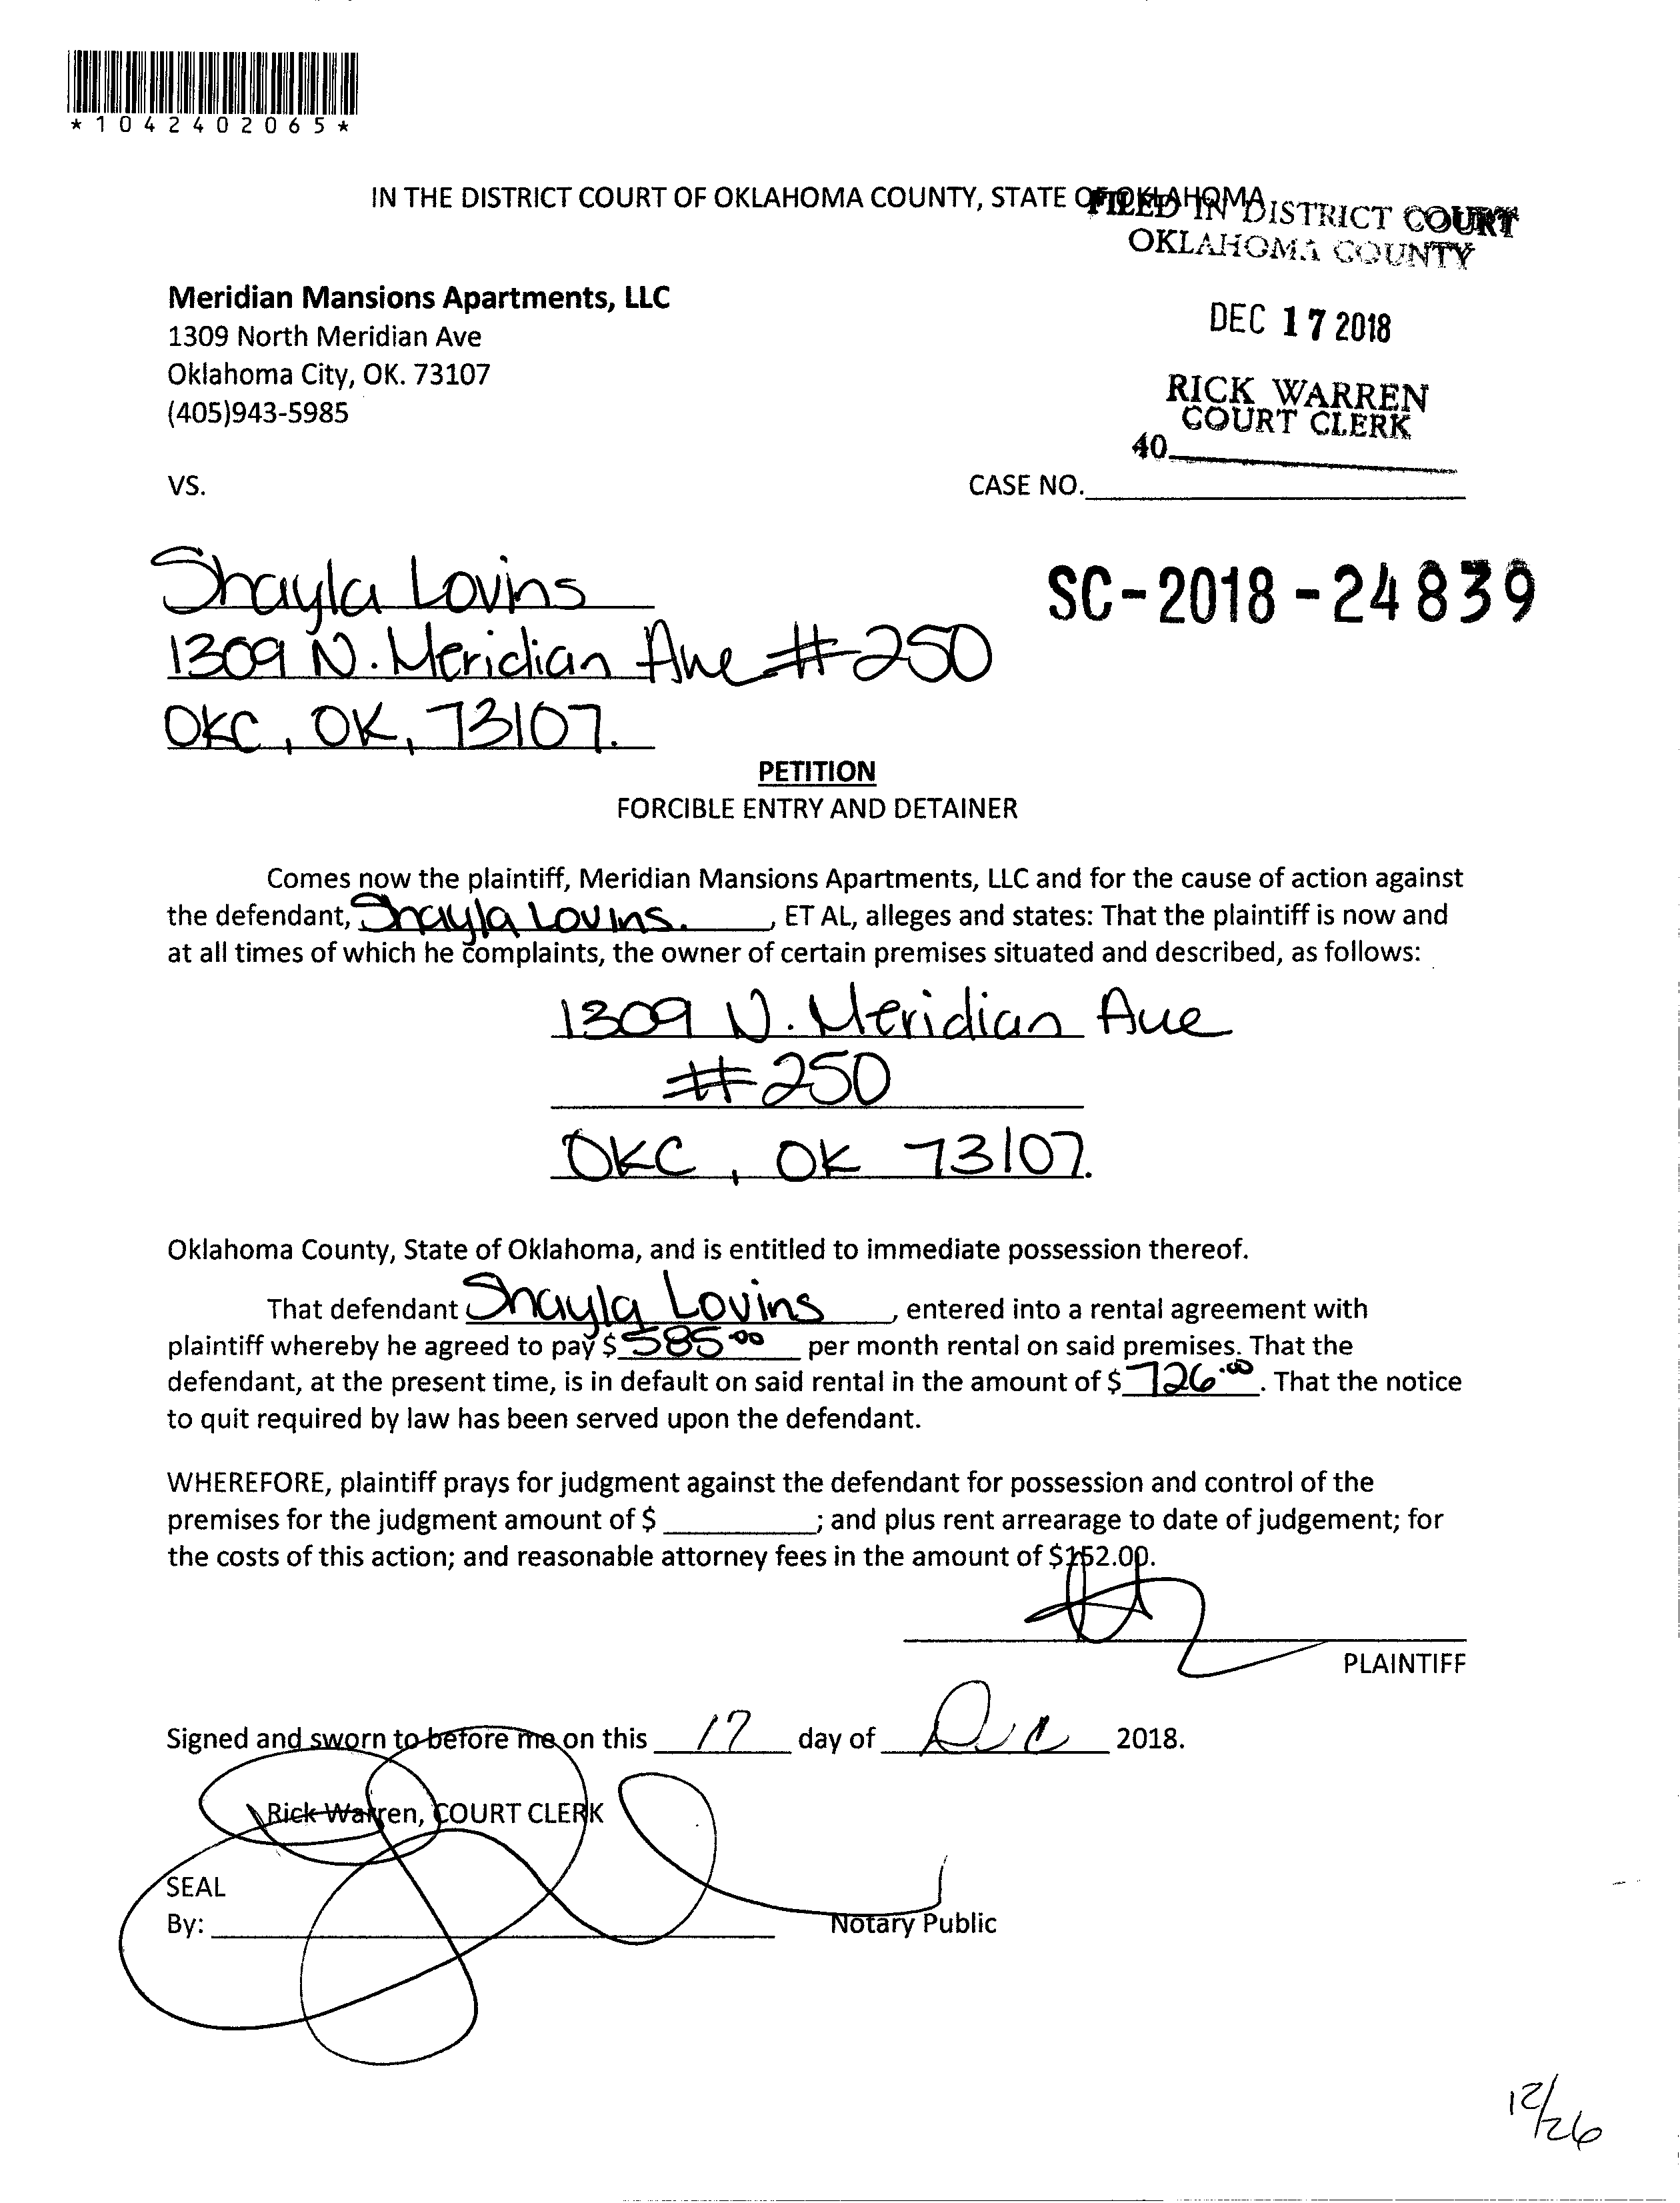 *1042402065*
IN THE DISTRICT COURT OF OKLAHOMA COUNTY, STATE OF OKLAHOMA
FILED IN DISTRICT COURT
OKLAHOMA COUNTY
Meridian Mansions Apartments, LLC
1309 North Meridian Ave
Oklahoma City, OK. 73107
(405)943-5985
DEC 17 2018
RICK WARREN
COURT CLERK
40
VS.
CASE NO.
Shayla Lovins
SC-2018-24839
1309 N. Meridian Ave #250
OKC, OK, 73107.
PETITION
FORCIBLE ENTRY AND DETAINER
Comes now the plaintiff, Meridian Mansions Apartments, LLC and for the cause of action against
the defendant, Shayla Lovins. , ET AL, alleges and states: That the plaintiff is now and
at all times of which he complaints, the owner of certain premises situated and described, as follows:
1309 N. Meridian Ave
#250
OKC, OK 73107.
Oklahoma County, State of Oklahoma, and is entitled to immediate possession thereof.
That defendant Shayla Lovins , entered into a rental agreement with
plaintiff whereby he agreed to pay $ 585.00 per month rental on said premises. That the
defendant, at the present time, is in default on said rental in the amount of $ 726.00. That the notice
to quit required by law has been served upon the defendant.
WHEREFORE, plaintiff prays for judgment against the defendant for possession and control of the
premises for the judgment amount of $ ; and plus rent arrearage to date of judgement; for
the costs of this action; and reasonable attorney fees in the amount of $152.00.
PLAINTIFF
Signed and sworn to before me on this 17 day of Dec 2018.
Rick Warren, COURT CLERK
SEAL
By:
Notary Public
12/26